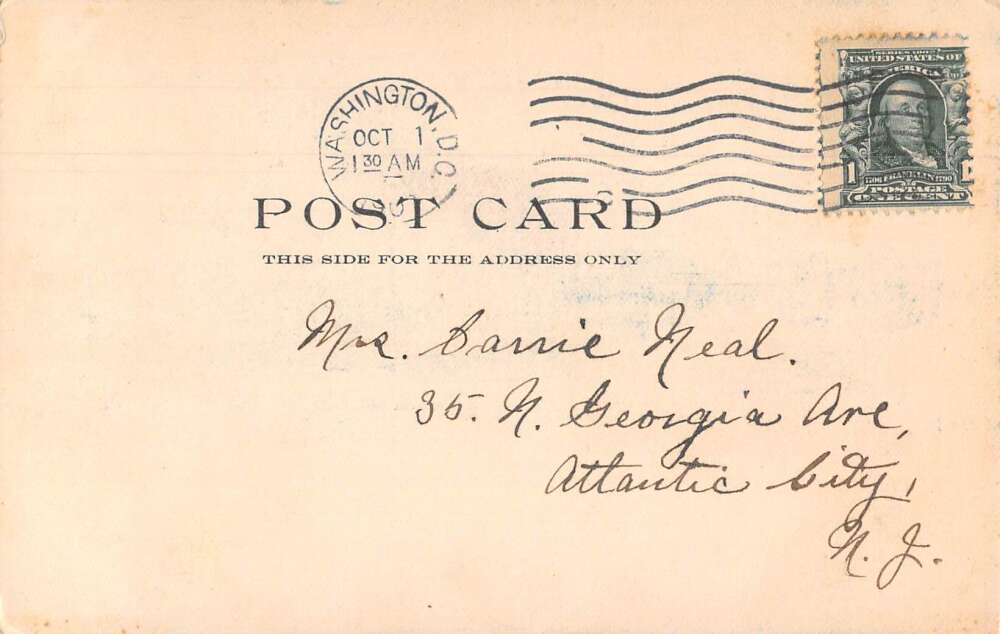 WASHINGTON, D.C.
OCT 1
1 30 AM
SERIES 1902
UNITED STATES OF
AMERICA
1
1706 FRANKLIN 1790
POSTAGE
ONE CENT
POST CARD
THIS SIDE FOR THE ADDRESS ONLY
Mrs. Carrie Neal.
35. N. Georgia Ave,
Atlantic City,
N. J.